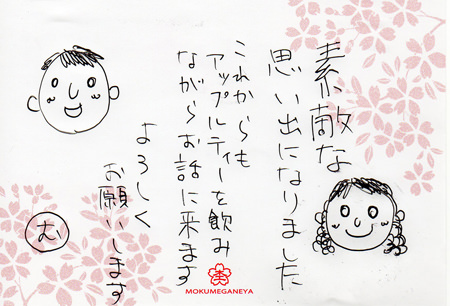 素敵な
思い出になりました
これからも
アップルティーを飲み
ながらお話に来ます
よろしく
お願いします
む
MOKUMEGANEYA